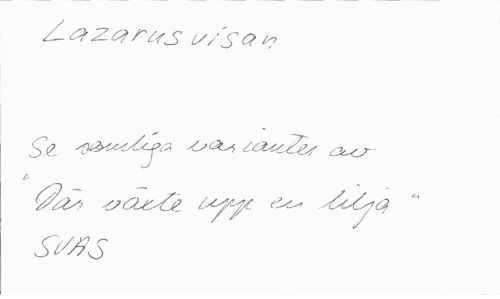 Lazarusvisan
Se samtliga varianter av
"Där växte upp en lilja"
SVAS